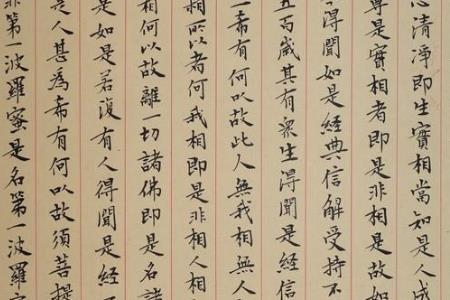 心清淨即生實相當知是人成
尊是實相者即是非相是故如
得聞如是經典信解受持不
五百歲其有眾生得聞是經信
一希有何以故此人無我相無人
相所以者何我相即是非相人相
相何以故離一切諸佛即是名諸
是如是若復有人得聞是經不
是人甚為希有何以故須菩提
非第一波羅蜜是名第一波羅